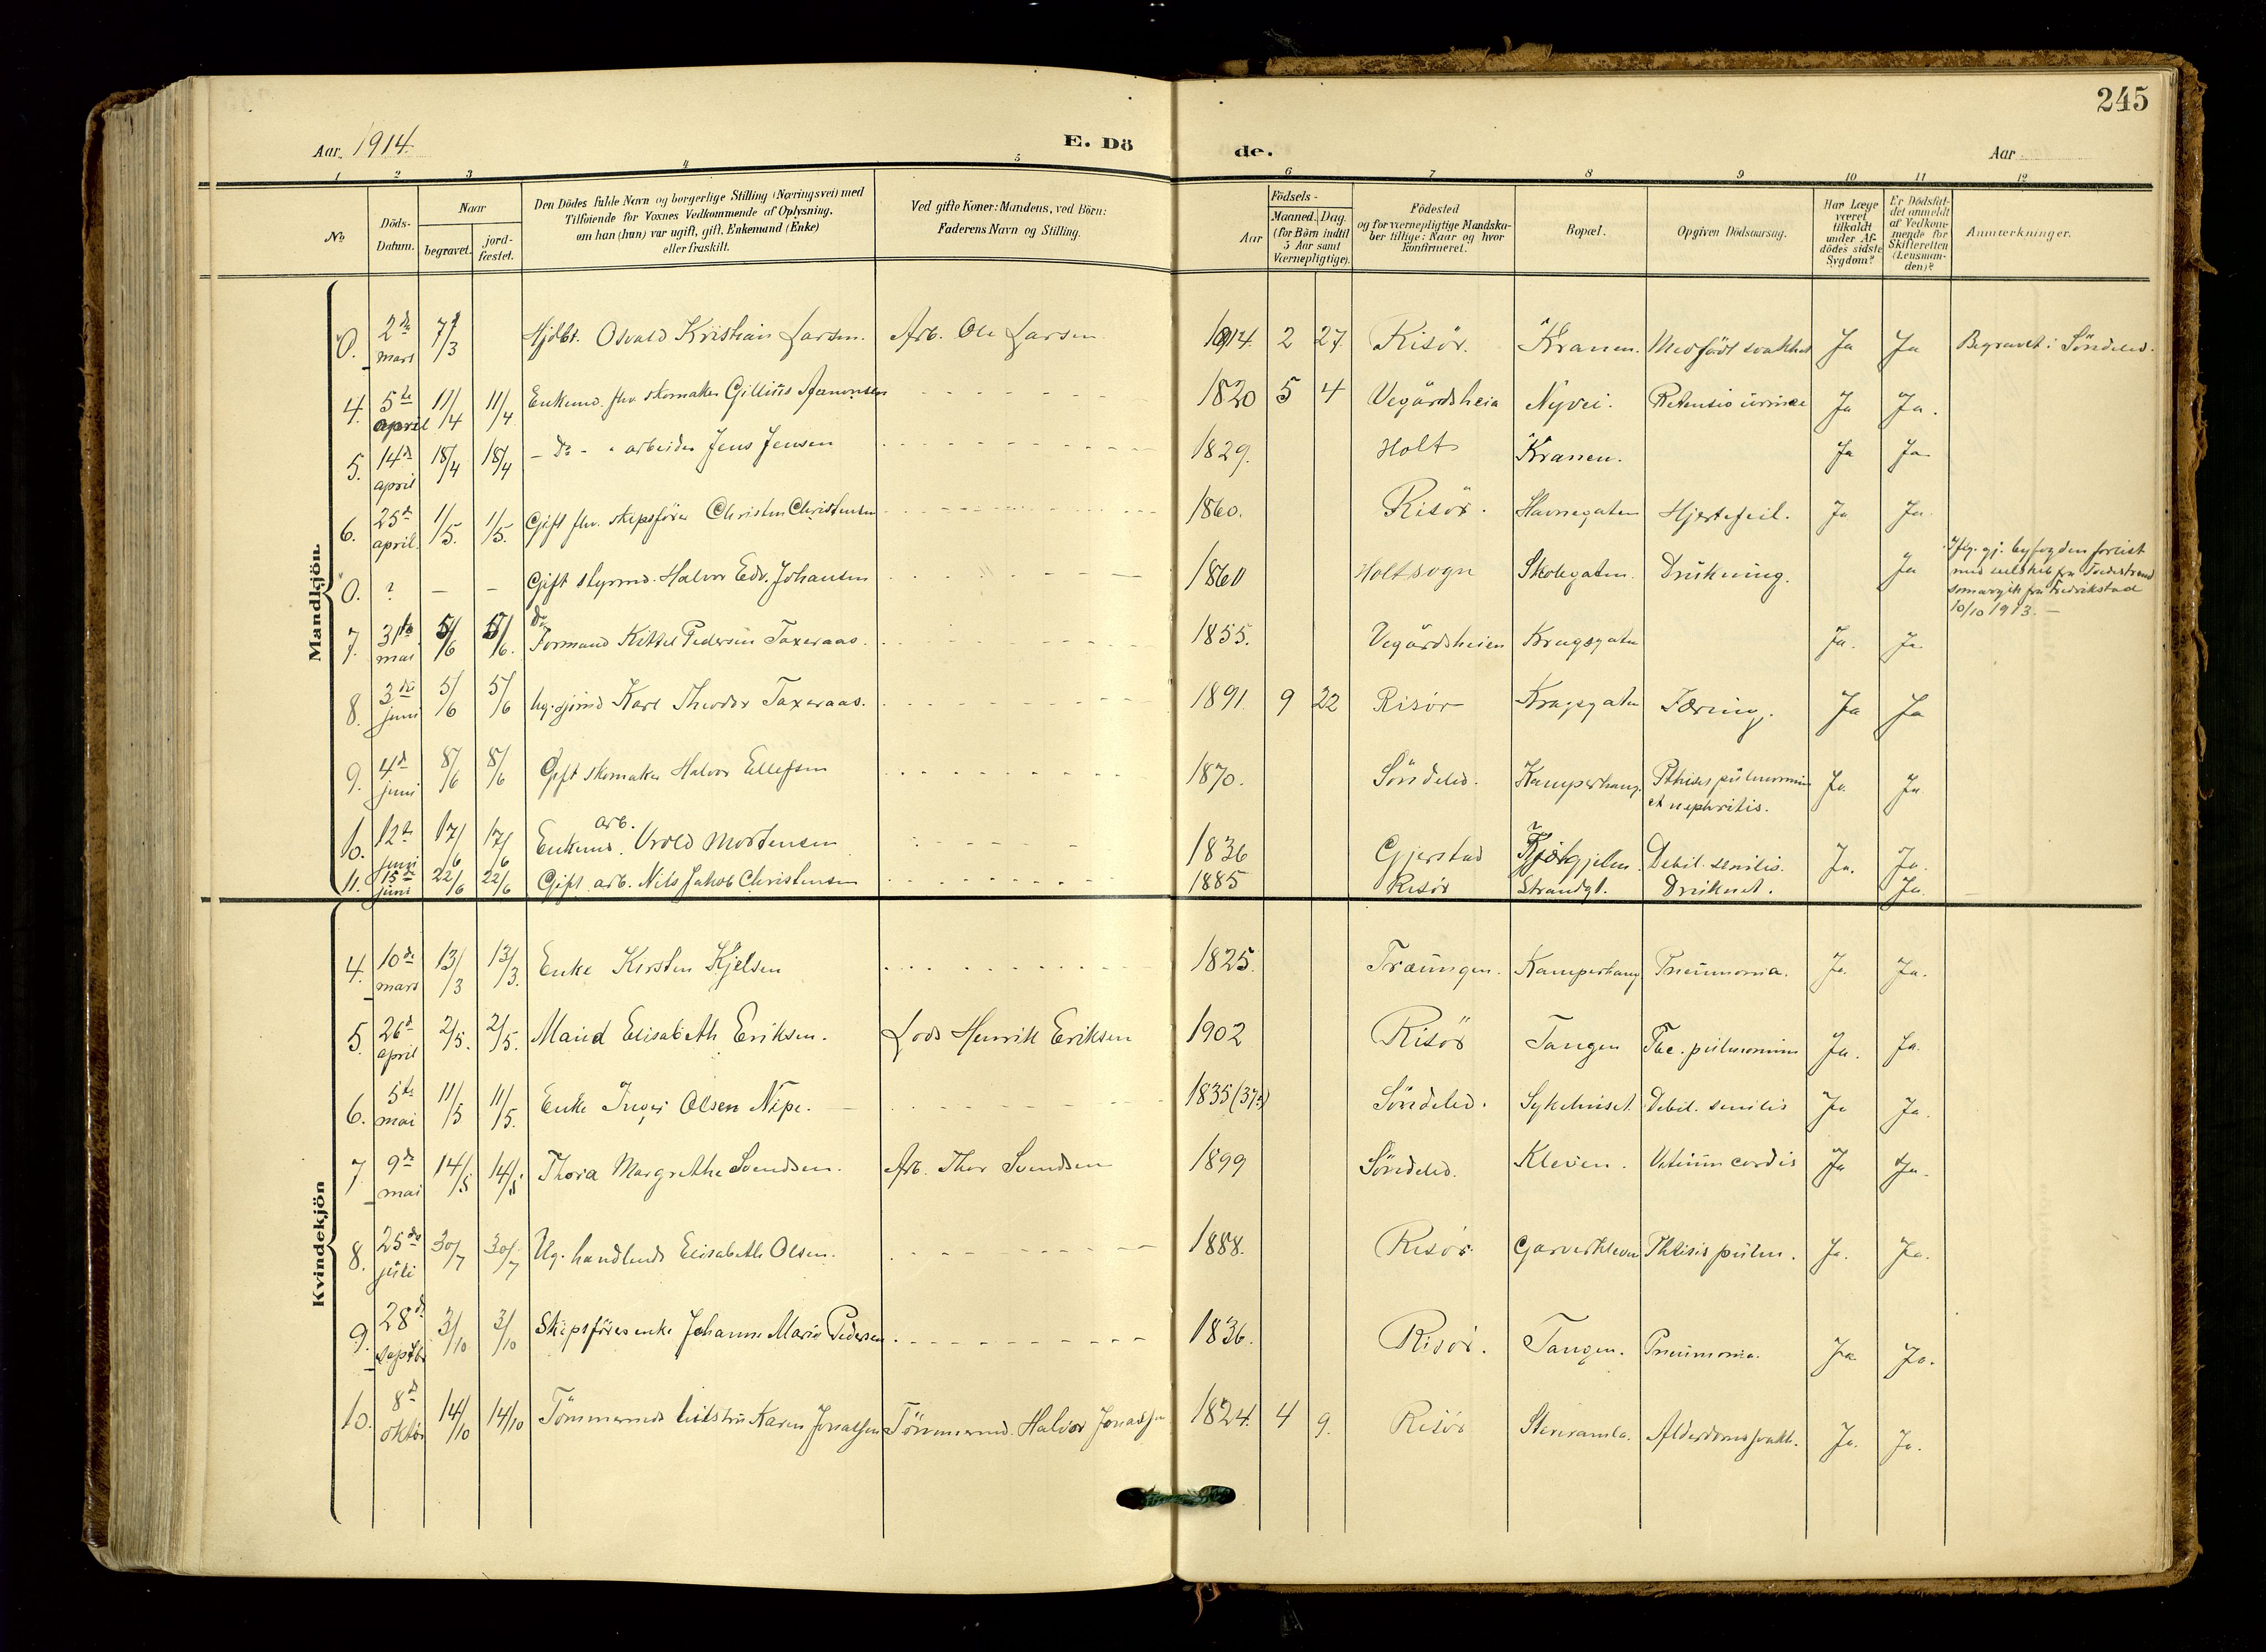 245
Aar 1914.
E. Dö
de.
Aar
1 2 3 4 5 6 7 8 9 10 11 12
No.
Döds-Datum.
Naar
begravet.
jord-fæstet.
Den Dödes fulde Navn og borgerlige Stilling (Næringsvei) med
Tilføiende for Voxnes Vedkommende af Oplysning,
om han (hun) var ugift, gift, Enkemand (Enke)
eller fraskilt.
Ved gifte Koner: Mandens, ved Börn:
Faderens Navn og Stilling.
Födsels-
Aar
Maaned. Dag.
(for Börn indtil
5 Aar samt
Værnepligtige).
Födested
og for værnepligtige Mandska-
ber tillige: Naar og hvor
konfirmeret.
Bopæl.
Opgiven Dödsaarsag.
Har Læge
været
tilkaldt
under Af-
dödes sidste
Sygdom?
Er Dödsfal-
det anmeldt
af Vedkom-
mende for
Skifteretten
(Lensman-
den)?
Anmærkninger.
Mandkjön.
0. 2de mars 7/3 Hjdbt. Osvald Kristian Larsen. Arb. Ole Larsen 1914. 2 27 Risör. Kranen. Medfödt svakhet Ja Ja Begravet i Söndeled.
4. 5te april 11/4 11/4 Enkemd. fhv. skomaker Gillius Aamonsen 1820 5 4 Vegårdsheia Nyvei. Retensio urinae Ja Ja.
5. 14d april 18/4 18/4 - Do - " arbeider Jens Jensen 1829. Holt Kranen. Ja Ja
6. 25d april. 1/5. 1/5. Gift fhv. skipsförer Christen Christensen 1860. Risör. Havnegaten Hjertefeil. Ja Ja
0. ? - - Gift styrmd. Halvor Edv. Johansen 1860 Holt sogn Skolegaten. Drukning. Ja
Iflg. gj. byfogden forlist
med seilskib fra Tvedestrand
som avgik fra Fredrikstad
10/10 1913. -
7. 31te mai 5/6 5/6. Do Formand Kittel Pedersen Taxeraas. 1855. Vegårdsheien Kragsgaten Ja. Ja
8. 3de juni 5/6 5/6 Ug. sjömd Karl Theodor Taxeraas. 1891. 9 22 Risör Kragsgaten Tæring. Ja Ja
9. 4d juni 8/6 8/6 Gift skomaker Halvor Ellefsen 1870. Söndeled. Kamperhaug. Phthisis pulmonum
et nephritis. Ja Ja
10. 12te juni 17/6 17/6 Enkemd. arb. Vrold Mortensen 1836 Gjerstad Debil. senilis. Ja. Ja.
11. 15de juni 22/6 22/6 Gift arb. Nils Jakob Christensen 1885 Risör Strandgt. Druknet. Ja.
Kvindekjön
4. 10de mars 13/3 13/3. Enke Kirsten Kjelsen 1825. Træungen. Kamperhaug Pneumonia. Ja. Ja.
5. 26d april 2/5. 2/5. Maud Elisabeth Eriksen. Lods Henrik Eriksen 1902 Risör Tangen Tbc. pulmonum Ja. Ja.
6. 5te mai 11/5 11/5. Enke Inger Olsen Nipe. 1835 (37?) Söndeled. Sykehuset. Debil. senilis Ja Ja.
7. 9de mai 14/5 14/5 Thora Margrethe Svendsen. Arb. Thor Svendsen 1899 Söndeled. Kleven. Vitium cordis Ja Ja.
8. 25de juli 30/7 30/7 Ug. handlende Elisabeth Olsen. 1888. Risör. Garverkleven Phtisis pulm. Ja. Ja.
9. 28d septbr 3/10 3/10 Skipsförerenke Johanne Marie Pedersen 1836. Risör. Tangen. Pneumonia. Ja Ja.
10. 8d oktbr 14/10 14/10 Tömmermds hustru Karen Jonassen Tömmermd. Halvor Jonassen 1824. 4 9. Risör Alderdomssvakh. Ja. Ja.